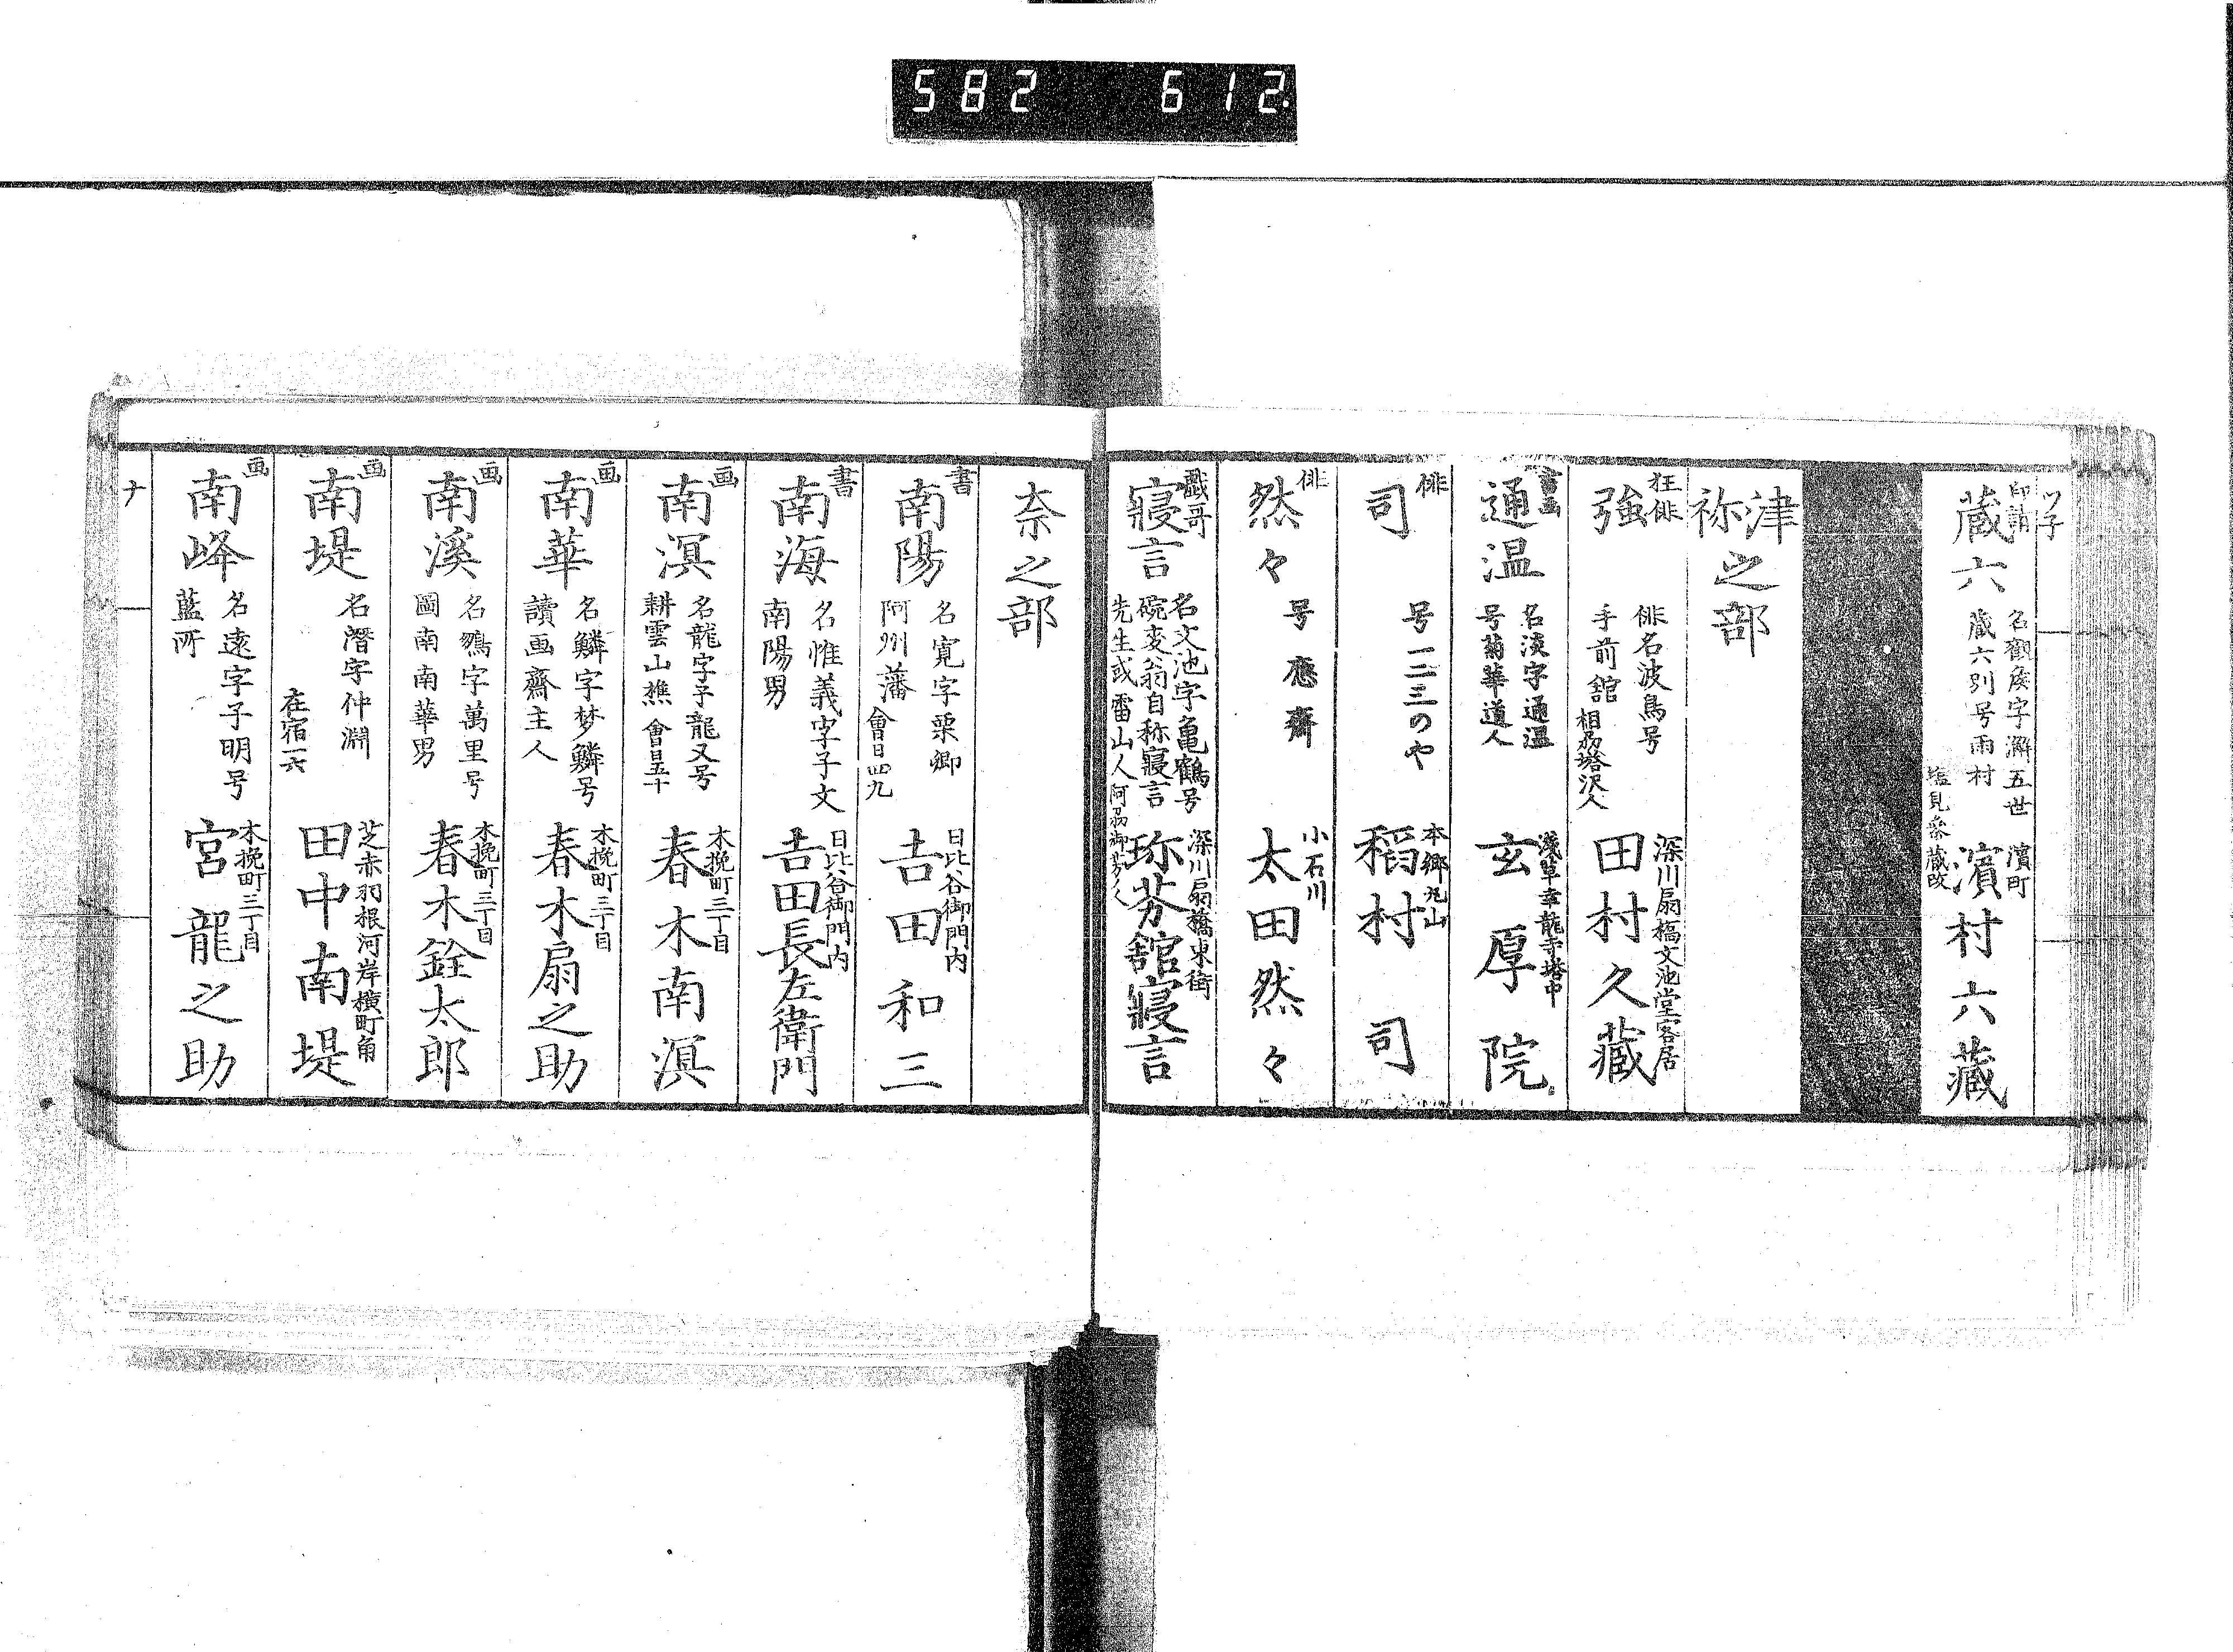 582 612.
ツ子
印譜
蔵六
名觀矦字澥五世
蔵六別号雨村
濱町
濱村六藏
津
祢
之部
狂俳
強
俳名波鳥号
手前舘
相刕塔沢人
深川扇橋文池堂客居
田村久藏
書画
通温
名淡字通温
号菊華道人
浅草幸龍寺塔中
玄厚院
俳
司
号一二三のや
本郷丸山
稻村司
俳
然々
号應齊
小石川
太田然々
戲哥
寢言
名文池字亀鶴号
碗変翁自称寢言
先生或雷山人
深川扇橋東街
弥芬舘寢言
奈之部
書
南陽
名寛字栗卿
阿州藩
會日四九
日比谷御門内
吉田和三
書
南海
名惟義字子文
南陽男
日比谷御門内
吉田長左衛門
画
南溟
名龍字子龍又号
耕雲山樵
會日五十
木挽町三丁目
春木南溟
画
南華
名鱗字梦鱗号
讀画齋主人
木挽町三丁目
春木扇之助
画
南溪
名鶵字萬里号
圖南南華男
木挽町三丁目
春木銓太郎
画
南堤
名潛字仲淵
在宿一六
芝赤羽根河岸横町角
田中南堤
画
南峰
名遠字子明号
藍所
木挽町三丁目
宮龍之助
ナ